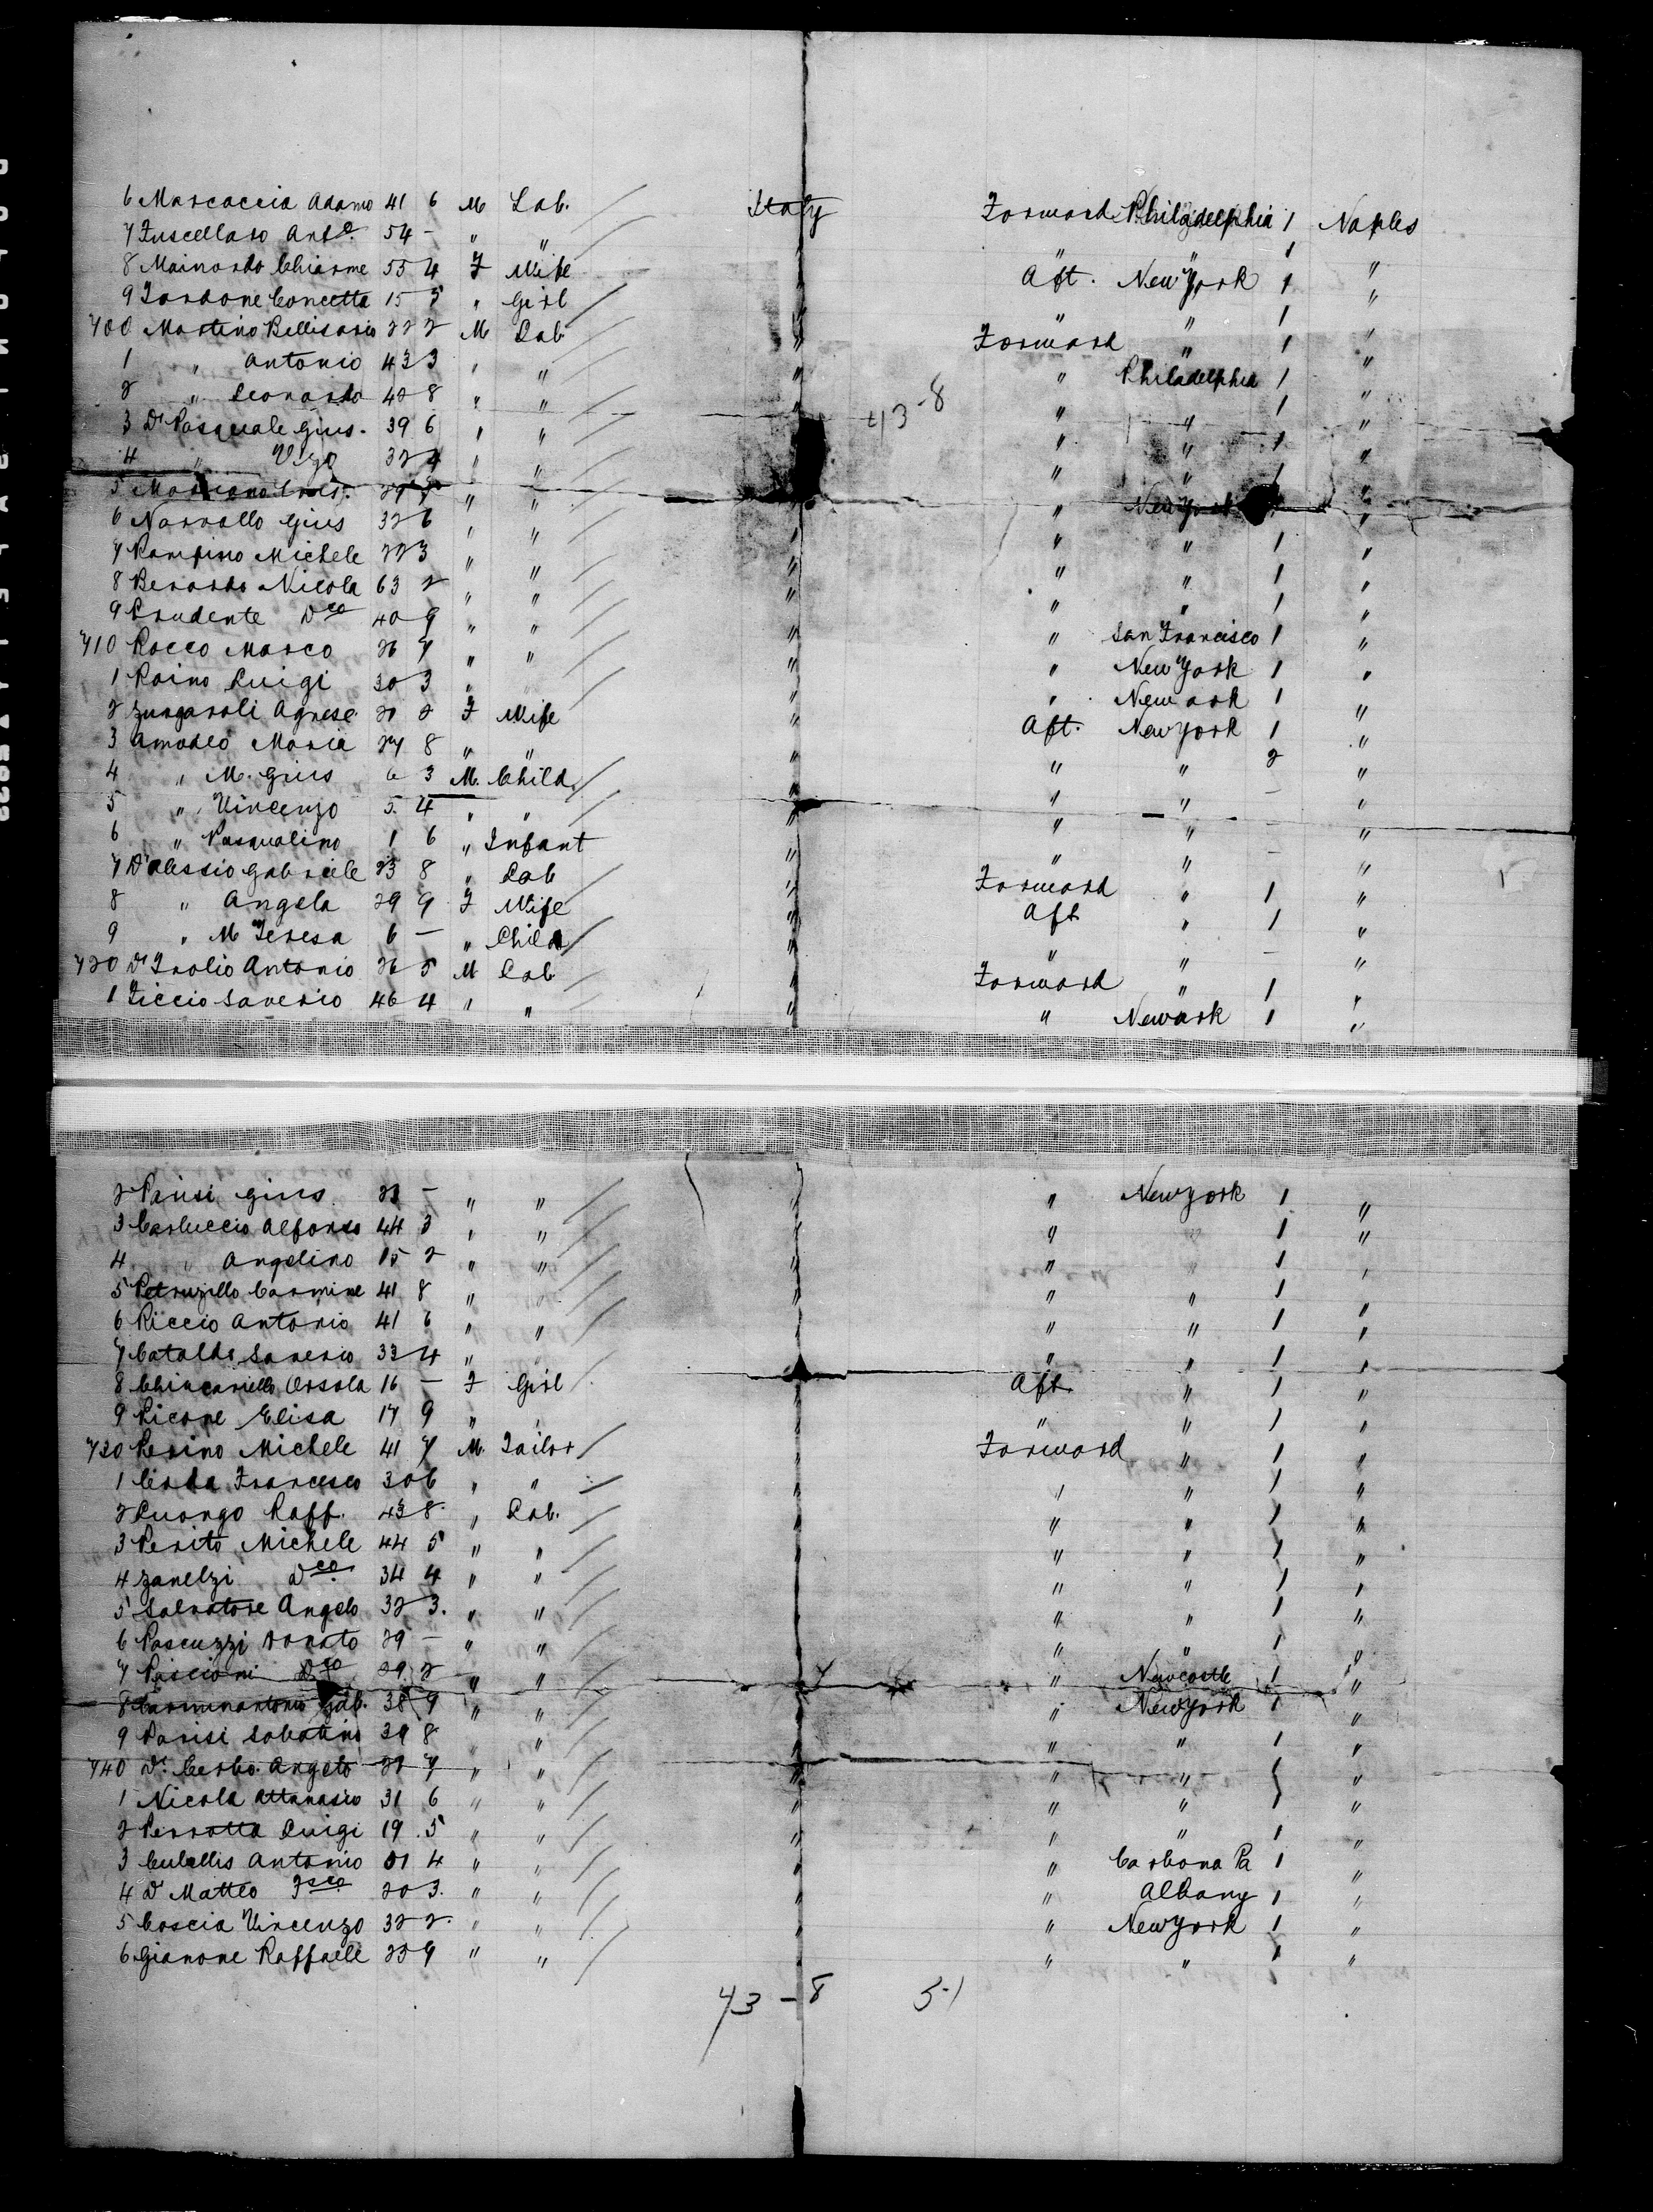 6 Marcaccia Adamo 41 6 M Lab. Italy Forward Philadelphia 1 Naples
7 Fuscellaro Anto. 54 - " " " " " 1 "
8 Mainardo Chiarme 55 4 F Wife " Aft. New York 1 "
9 Iardone Concetta 15 5 " Girl " " " 1 "
700 Martino Bellisario 22 2 M Lab " Forward " 1 "
1 " Antonio 43 3 " " " " Philadelphia 1 "
2 " Leonardo 42 8 " " " " " 1 "
43-8
3 Di Pasquale Gius. 39 6 " " " " " 1 "
4 " Vizo 32 4 " " " " " 1 "
5 Marriano " " " " New York "
6 Narrallo Gius 32 6 " " " " " 1 "
7 Pampino Michele 22 3 " " " " " 1 "
8 Berardo Nicola 63 2 " " " " " 1 "
9 Prudente Dco 40 9 " " " " San Francisco 1 "
710 Rocco Marco 26 7 " " " " New York 1 "
1 Raino Luigi 30 3 " " " " Newark 1 "
2 Zungaroli Agnese 21 2 F Wife " Aft. New York 1 "
3 Amodeo Maria 27 8 " " " " " 2 "
4 " M. Gius 6 3 M. Child " " " - "
5 " Vincenzo 5 4 " " " " " - "
6 " Pasqualino 1 6 " Infant " " " - "
7 D'Alessio Gabriele 23 8 " Lab " Forward " 1 "
8 " Angela 29 9 F Wife " Aft " 1 "
9 " M Teresa 6 - " Child " " " - "
720 Di Iralio Antonio 26 5 M Lab " Forward " 1 "
1 Ziccio Saverio 46 4 " " " " Newark 1 "
2 Parisi Gius 23 - " " " " New York 1 "
3 Carluccio Alfonso 44 3 " " " " " 1 "
4 " Angelino 15 2 " " " " " 1 "
5 Petruzillo Carmine 41 8 " " " " " 1 "
6 Riccio Antonio 41 6 " " " " " 1 "
7 Cataldo Saverio 33 4 " " " " " 1 "
8 Chincariello Orsola 16 - F Girl " Aft. " 1 "
9 Picone Elisa 17 9 " " " " " 1 "
730 Perino Michele 41 7 M. Tailor " Forward " 1 "
1 Cerda Francesco 30 6 " " " " " 1 "
2 Luongo Raff. 43 8 " Lab. " " " 1 "
3 Perito Michele 44 5 " " " " " 1 "
4 Zanelzi Dco 34 4 " " " " " 1 "
5 Salvatore Angelo 32 3. " " " " " 1 "
6 Pascuzzi Donato 29 - " " " " " 1 "
7 Piscioni Dco 29 2 " " " " Newcastle 1 "
8 Carminantonio Gab. 38 9 " " " " New York 1 "
9 Parisi Sabatino 39 8 " " " " " 1 "
740 Di Cerbo Angelo 27 7 " " " " " 1 "
1 Nicola Attanasio 31 6 " " " " " 1 "
2 Perrotta Luigi 19 5 " " " " " 1 "
3 Cubellis Antonio 31 4 " " " " Carbona Pa 1 "
4 Di Matteo Fsco 20 3. " " " " Albany 1 "
5 Coscia Vincenzo 32 2 " " " " New York 1 "
6 Gianone Raffaele 25 9 " " " " " 1 "
43-8 51